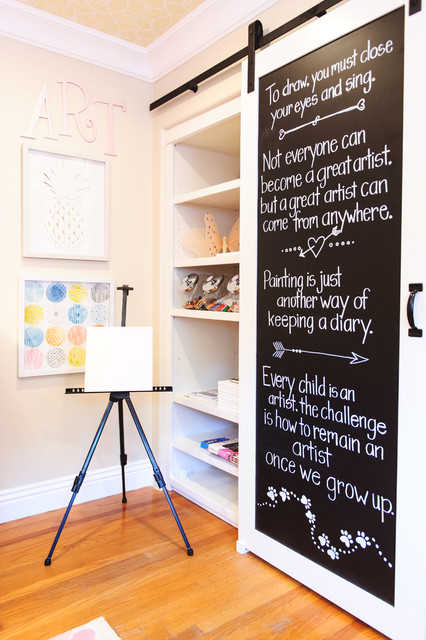 ART
To draw, you must close
your eyes and sing.
Not everyone can
become a great artist.
but a great artist can
come from anywhere.
Painting is just
another way of
keeping a diary.
Every child is an
artist. the challenge
is how to remain an
artist
once we grow up.